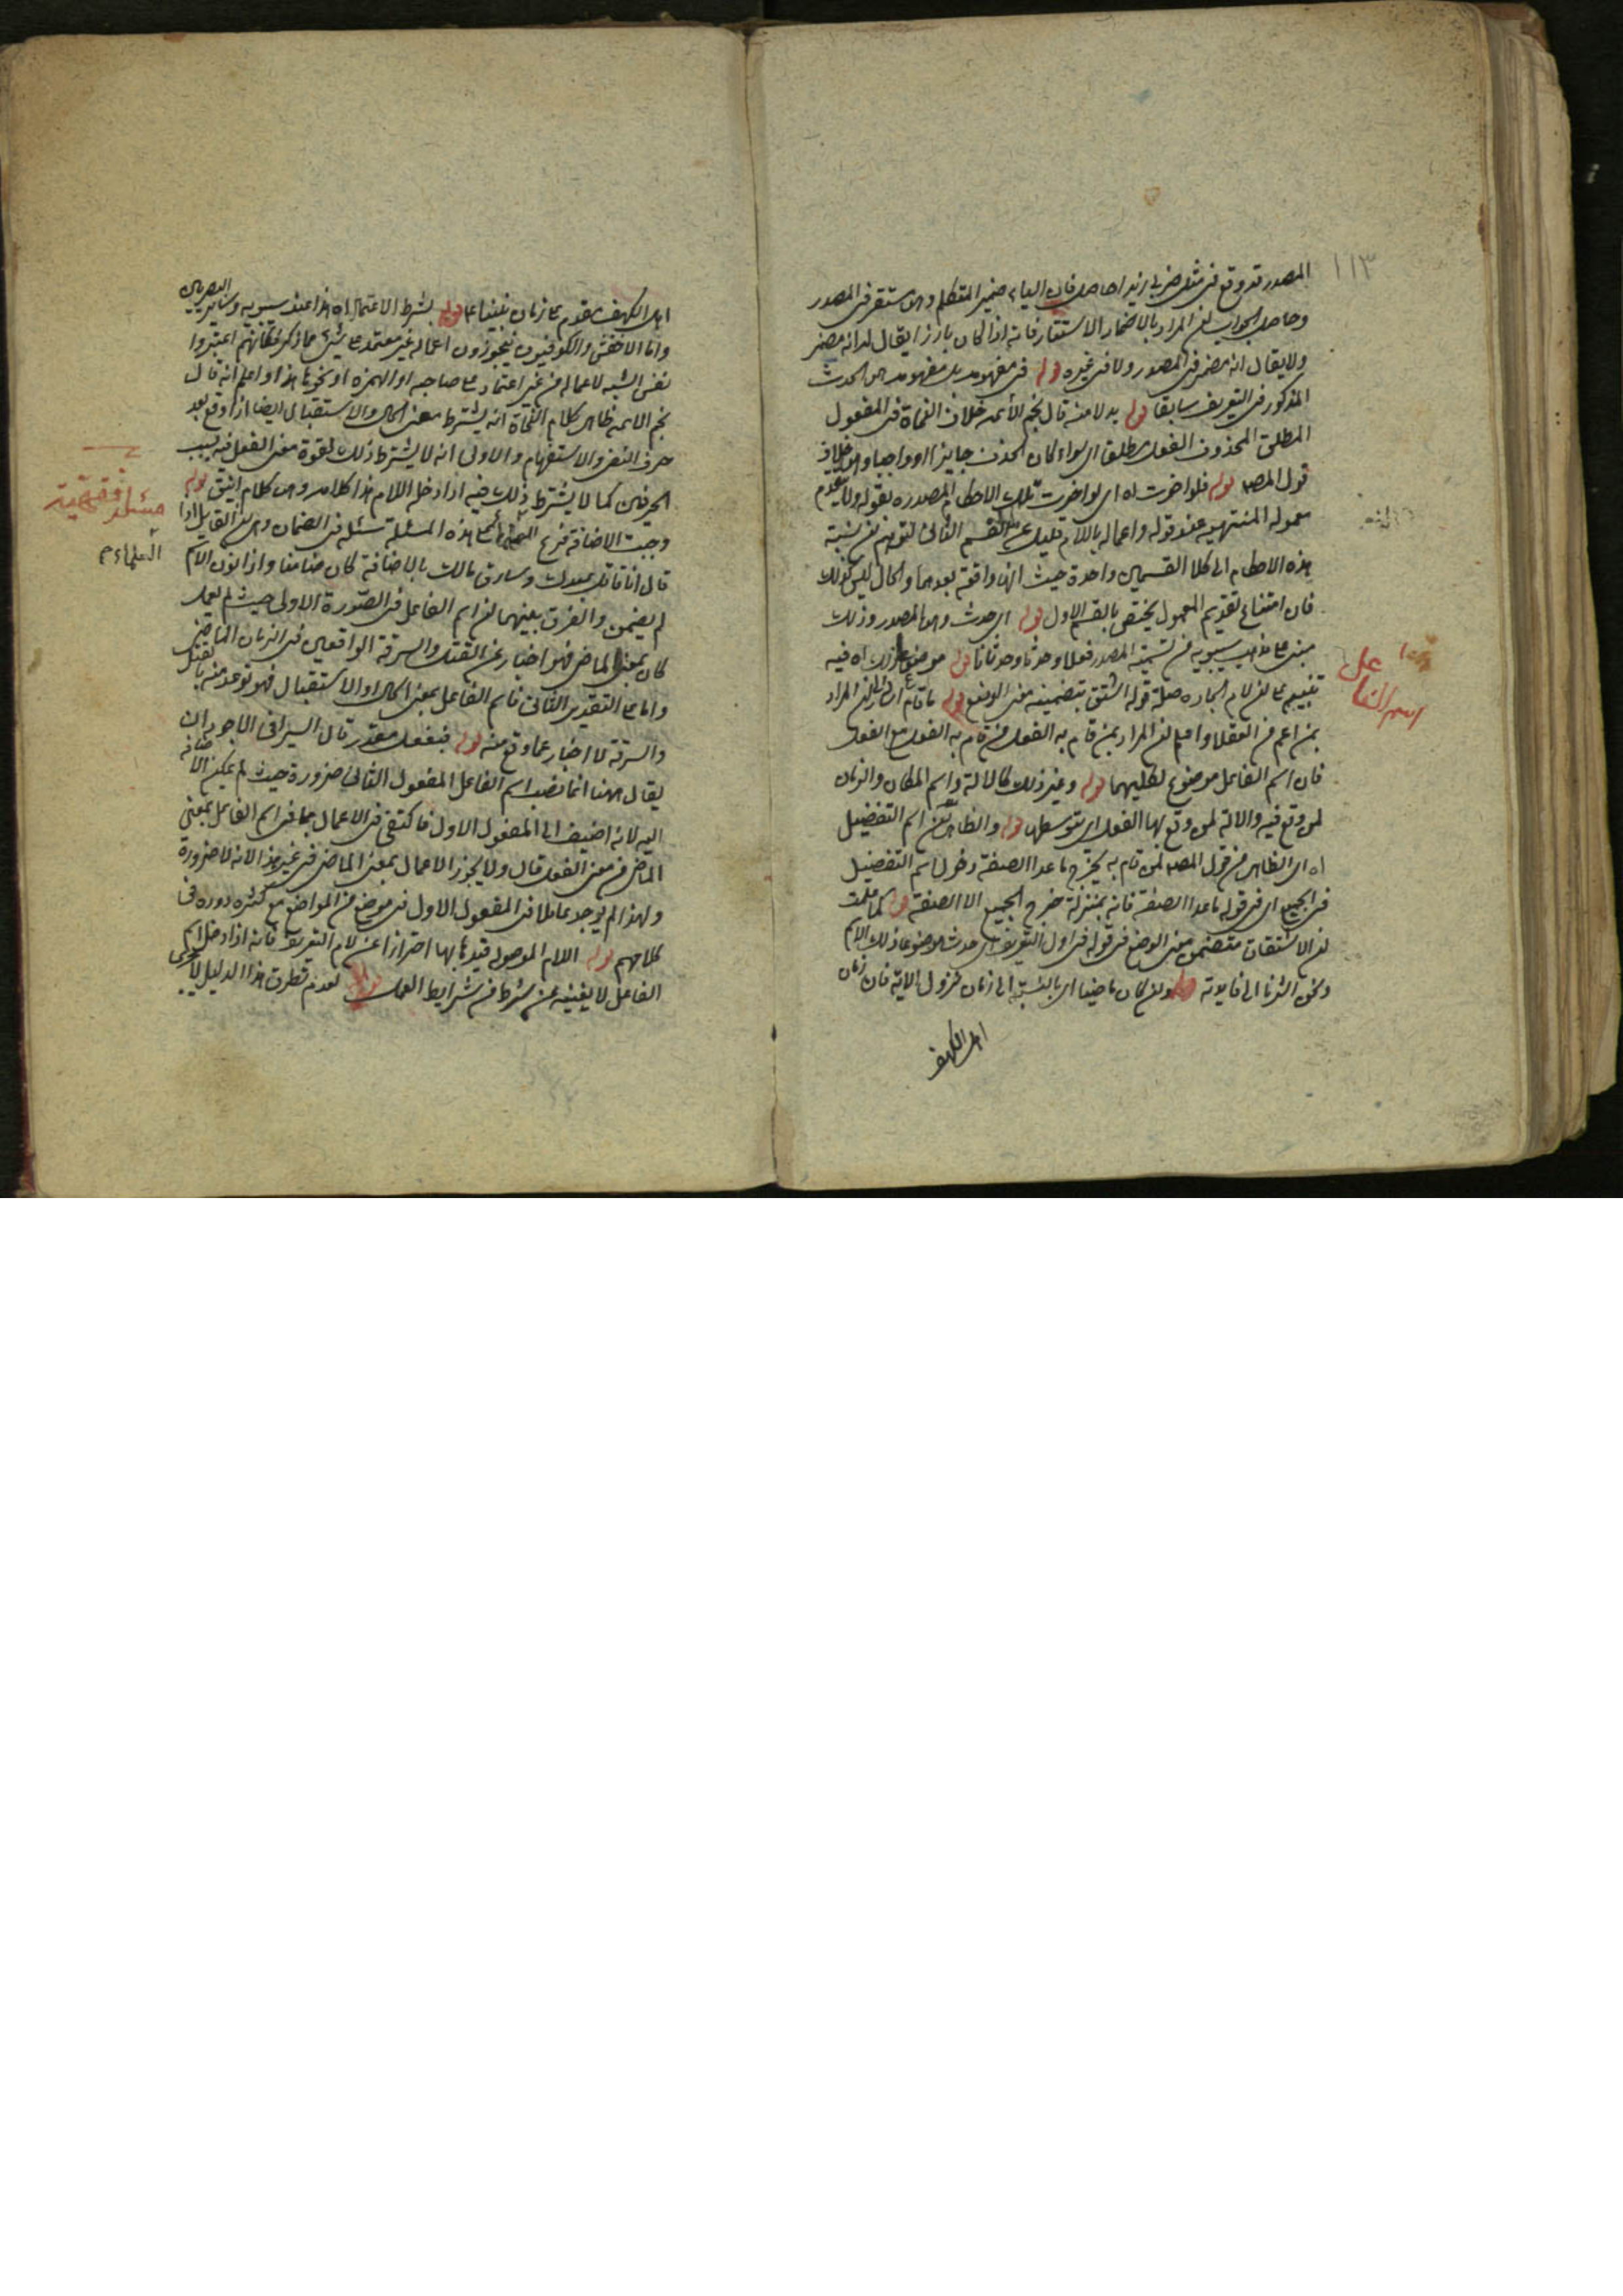 ١١٣
المصدر قد وقع في مثل ضربي زيدا حاصل فان الياء ضمير المتكلم وهو مستقر في المصدر
وحاصل الجواب ان المراد بالاضمار الاستتار فانه اذا كان بارزا يقال له انه مضمر
ولا يقال انه مضمر في المصدر ولا في غيره قوله في مفهومه بل مفهومه هو الحدث
المذكور في التعريف سابقا قوله بدلا منه قال نجم الأئمة خلاف النحاة في المفعول
المطلق المحذوف الفعل مطلقا اي سواء كان الحذف جايزا او واجبا وهو خلاف
قول المصـ قوله فلو اخرت اه اي لو اخرت تلك الاحكام المصدره بقوله ولا يتقدم
معموله المنتهية عند قوله واعماله باللام قليل عن القسم الثاني لتوهم ان نسبة
هذه الاحكام الى كلا القسمين واحدة حيث انها واقعة بعدهما والحال ليس كذلك
فان امتناع تقديم المعمول يختص بالقسم الاول قوله اي حدث وهو المصدر وذلك
مبني على مذهب سيبويه من تسمية المصدر فعلا وحدثا وحدثانا قوله موضوع لذلك اه فيه
تنبيه على ان لام الجاره صلة قوله اشتق بتضمينه معنى الوضع قوله ما قام المراد
بمن اعم من العقلا واعلم ان المراد بمن قام به الفعل من قام به الفعل مع الفعل
فان اسم الفاعل موضوع لكليهما قوله وغير ذلك كالالة واسم المكان والزمان
لمن وقع فيه والالة لمن وقع بها الفعل اي بتوسطها قوله والظاهر ان اسم التفضيل
اه اي الظاهر من قول المصـ لمن قام به يخرج ما عدا الصفة دخول اسم التفضيل
في الجميع اي في قوله ما عدا الصفة فانه بمنزلة خرج الجميع الا الصفة قوله كما علمت
ان الاشتقاق متضمن معنى الوضع في قوله في اول التعريف اي حدث موضوعا ذلك الاسم
ونحن اشرنا الى فايدته قوله وان كان ماضيا اي بالنسبة الى زمان نزول الاية فان زمان
اهل الكهف
اسم الفاعل
اهل الكهف مقدم على زمان نبينا عم قوله بشرط الاعتماد اه هذا عند سيبويه وساير البصريين
واما الاخفش والكوفيون فيجوزون اعماله غير معتمد على شيء مما ذكر فكانهم اعتبروا
نفس الشبه لاعماله من غير اعتماد على صاحبه او الهمزه او نحوها هذا واعلم انه قال
نجم الائمه ظاهر كلام النحاة انه يشترط معنى الحال والاستقبال ايضا اذا وقع بعد
حرف النفي والاستفهام والاولى انه لا يشترط ذلك لقوة معنى الفعل فيه بسبب
الحرفين كما لا يشترط ذلك فيه اذا دخله اللام هذا كلامه وهو كلام انيق قوله
وجبت الاضافة فرع على هذه المسئلة مسئلة في الضمان وهي ان القايل اذا
قال انا قاتل عبدك وسارق مالك بالاضافة كان ضامنا واذا نون الاسم
لم يضمن والفرق بينهما ان اسم الفاعل في الصورة الاولى حيث لم يعمل
كان بمعنى الماضي فهو اخبار عن القتل والسرقة الواقعين في الزمان الماضي
واما على التقدير الثاني فاسم الفاعل بمعنى الحال او الاستقبال فهو توعد منه بالقتل
والسرقة لا اخبار عما وقع منه قوله فبفعل مقدر قال السيرافي الاجود ان
يقال ههنا انما نصب اسم الفاعل المفعول الثاني ضرورة حيث لم يمكن الاضافة
اليه لانه اضيف الى المفعول الاول فاكتفى في الاعمال بما في اسم الفاعل بمعنى
الماضي من معنى الفعل قال ولا يجوز الاعمال بمعنى الماضي في غير هذا لانه لا ضرورة
ولهذا لم يوجد عاملا في المفعول الاول في موضع من المواضع مع كثرة دوره في
كلامهم قوله اللام الموصوله قيدها بها احترازا عن لام التعريف فانه اذا دخل اسم
الفاعل لا يغنيه عن شرط من شرايط العمل قوله لعدم تطرق هذا الدليل
مسئلة فقهية
العلماء